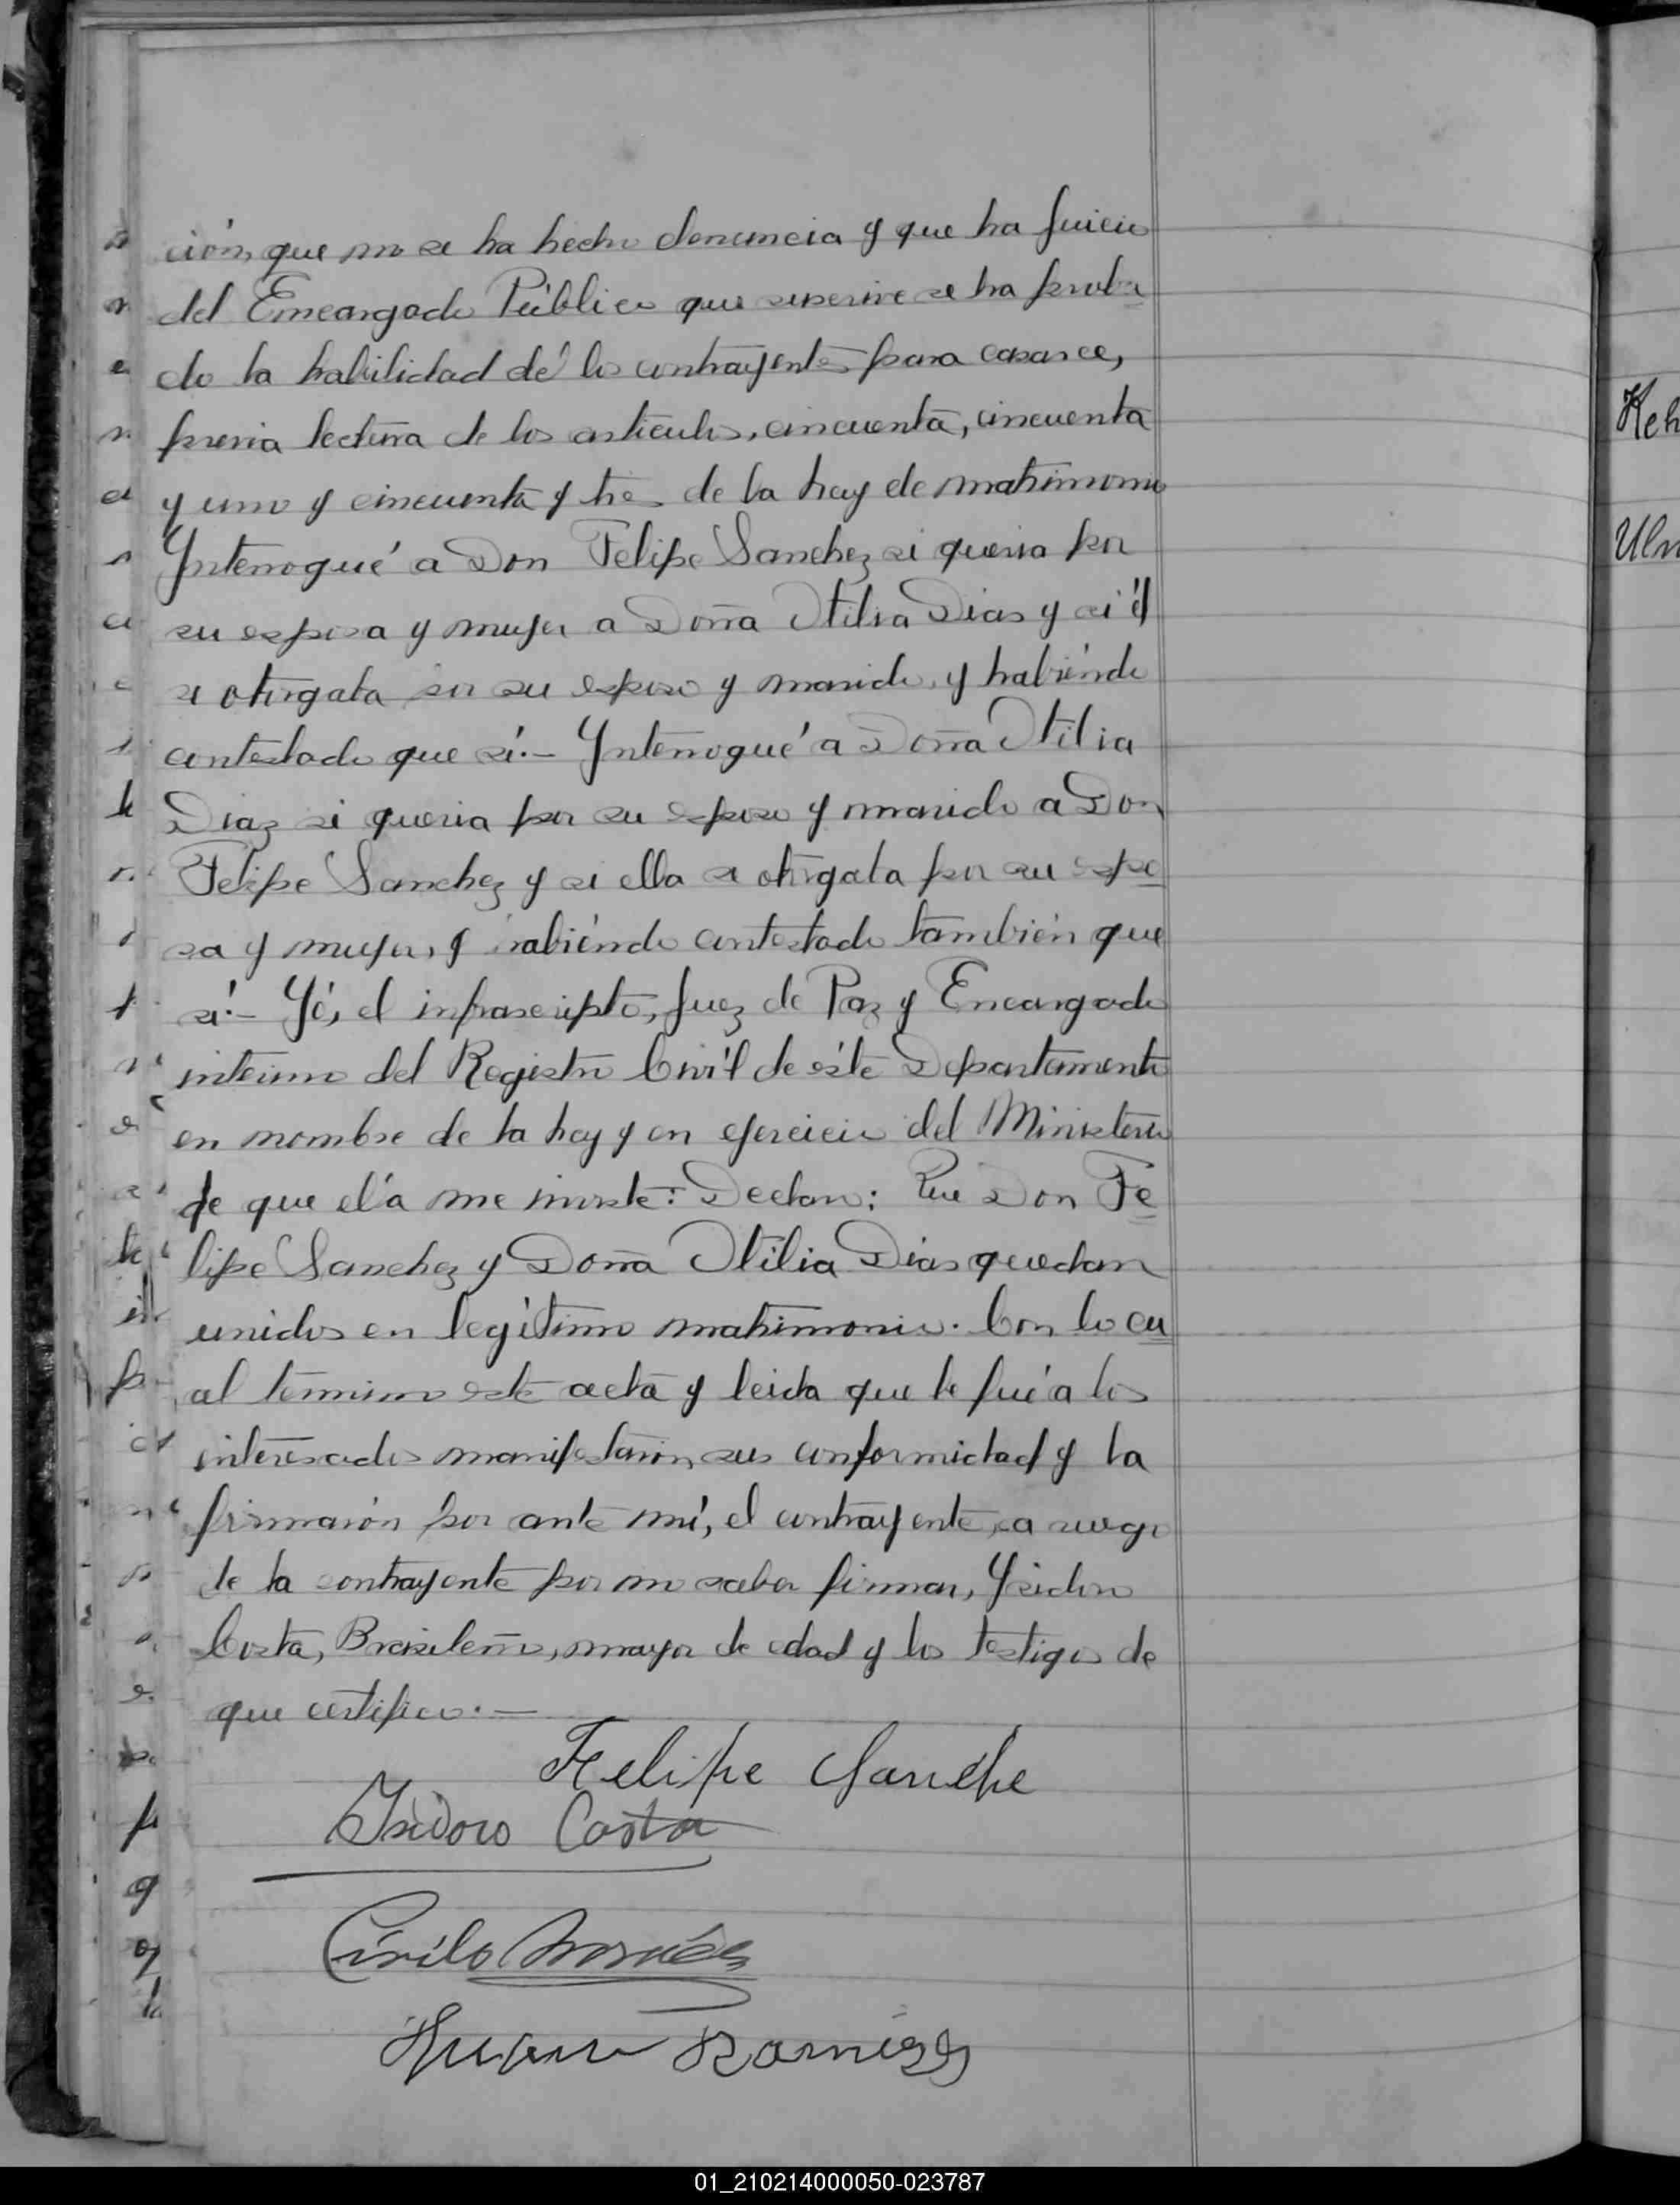 ción, que no se ha hecho denuncia y que ha juicio
del Encargado Público que suscrive se ha proba
do la habilidad dé los contrayentes para casarce,
previa lectura de los articulos, cincuenta, cincuenta
y uno y cincuenta y tres de la Ley de matrimonio
Ynterrogué a Don Felipe Sanchez si queria por
su esposa y mujer a Doña Otilia Dias y si él
se otorgaba por su esposo y marido, y habiéndo
contestado que sí.— Ynterrogué a Doña Otilia
Diaz si queria por su esposo y marido a Don
Felipe Sanchez y si ella se otorgaba por su espo
sa y mujer, y habiéndo contestado también que
sí.— Yó, el infrascripto, Juez de Paz y Encargado
interino del Registro Civíl de éste Departamento
en nombre de la Ley y en ejercicio del Ministerio
de que el'a me inviste: Declaro: Que Don Fe
lipe Sanchez y Doña Otilia Dias quedan
unidos en legítimo matrimonio. Con lo cu
al termino este acta y leida que le fué a los
interesados manifestarón, sus conformidad y la
firmarón por ante mí, el contrayente, a ruego
de la contrayente por no saber firmar, Ysidoro
Costa, Brasileño, mayor de edad y los testigos de
que certifico.—
Felipe Sanche
Isidoro Costa
Cirilo
Ramires
Keh
Ulr
01_210214000050-023787